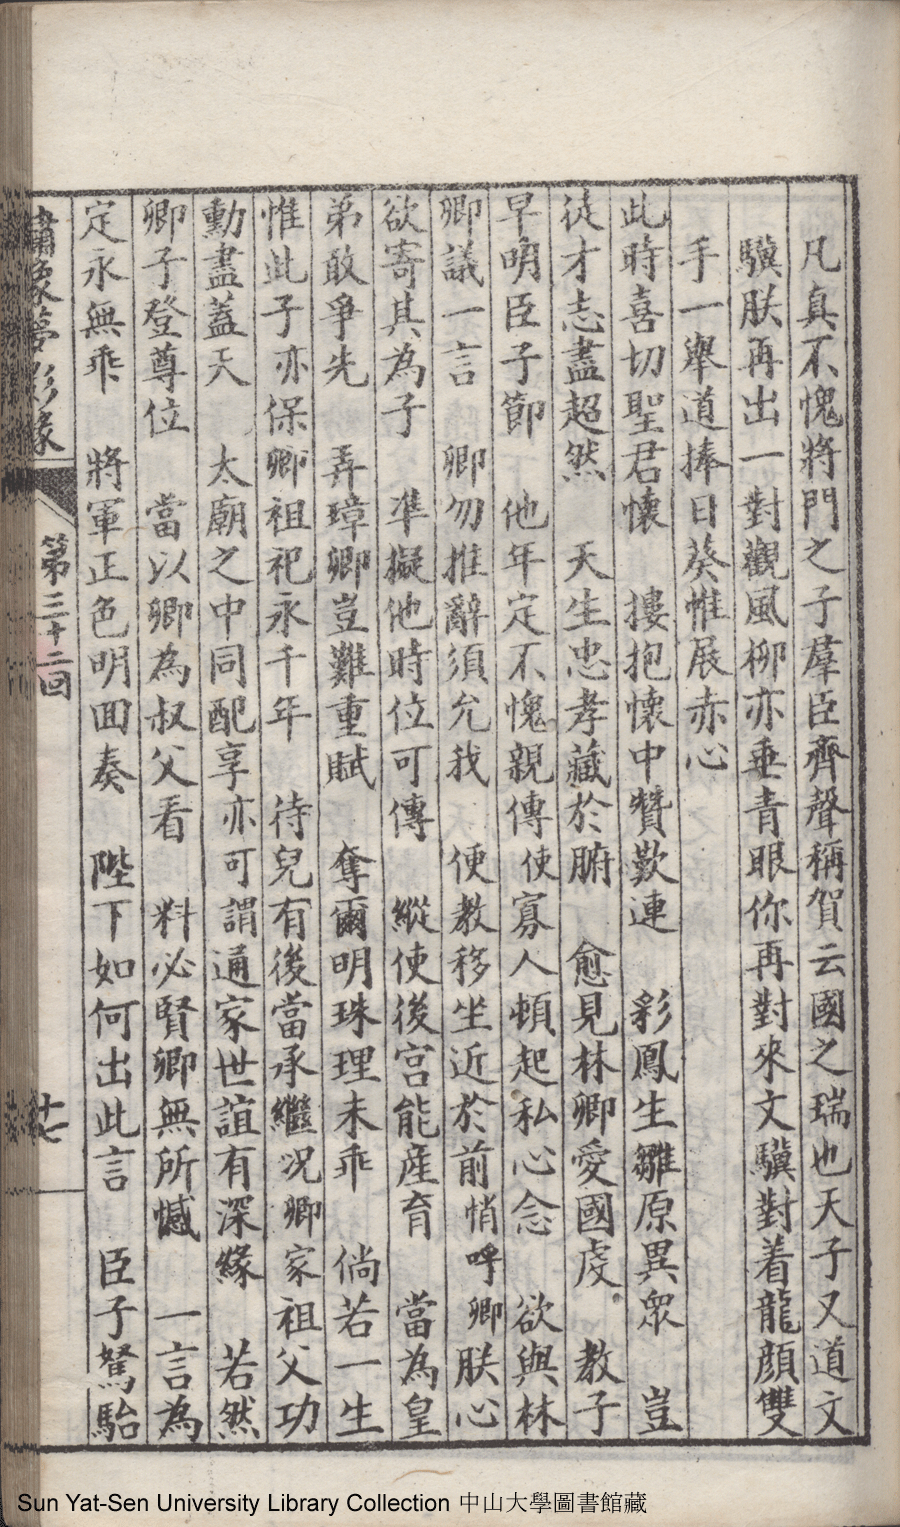 凡真不愧將門之子羣臣齊聲稱賀云國之瑞也天子又道文
驥朕再出一對觀風柳亦垂青眼你再對來文驥對着龍顏雙
手一舉道捧日葵惟展赤心
此時喜切聖君懷　摟抱懷中贊歎連　彩鳳生雛原異眾　豈
徒才志盡超然　天生忠孝藏於腑　愈見林卿愛國虔　教子
早明臣子節　他年定不愧親傳　使寡人頓起私心念　欲與林
卿議一言　卿勿推辭須允我　便教移坐近於前　悄呼卿朕心
欲寄其為子　準擬他時位可傳　縱使後宮能產育　當為皇
弟敢爭先　弄璋卿豈難重賦　奪爾明珠理未乖　倘若一生
惟此子　亦保卿祖祀永千年　待兒有後當承繼　况卿家祖父功
勳盡蓋天　太廟之中同配享　亦可謂通家世誼有深緣　若然
卿子登尊位　當以卿為叔父看　料必賢卿無所憾　一言為
定永無乖　將軍正色明囬奏　陛下如何出此言　臣子駑駘
夢影緣
第三十二回
十七
Sun Yat-Sen University Library Collection 中山大學圖書館藏